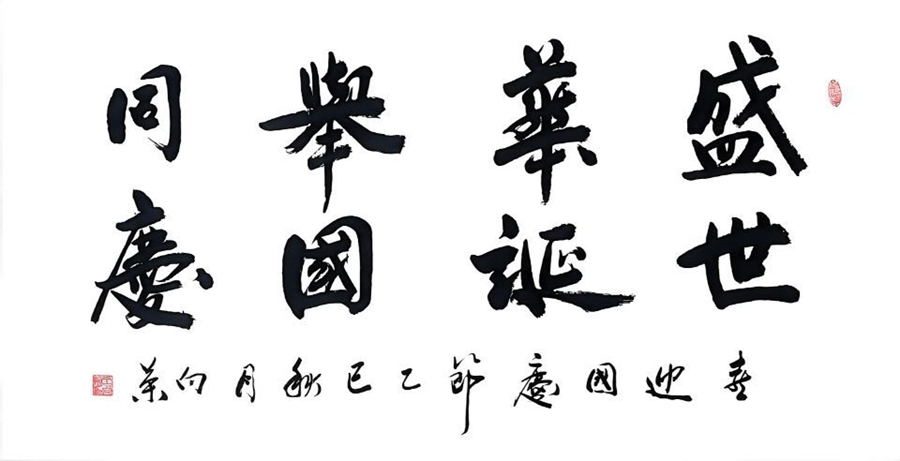 盛世
華誕
舉國
同慶
喜迎國慶節乙巳秋月向